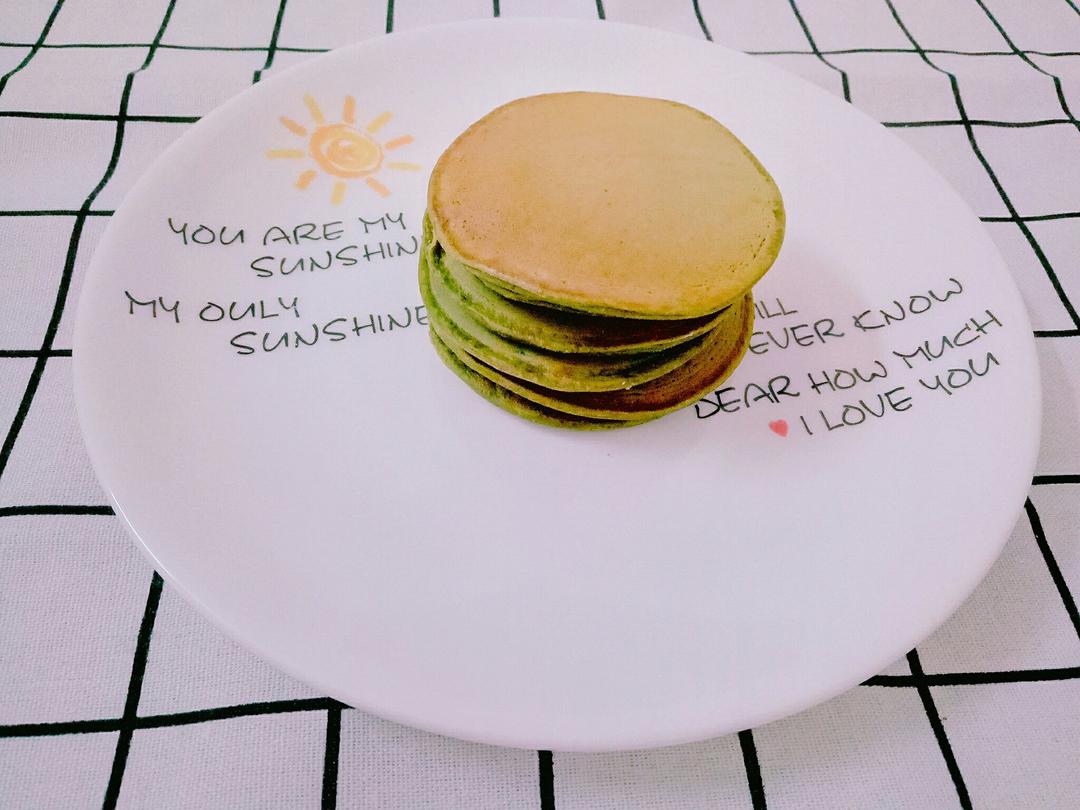 YOU ARE MY
SUNSHIN
MY OULY
SUNSHINE
ILL
EVER KNOW
DEAR HOW MUCH
I LOVE YOU